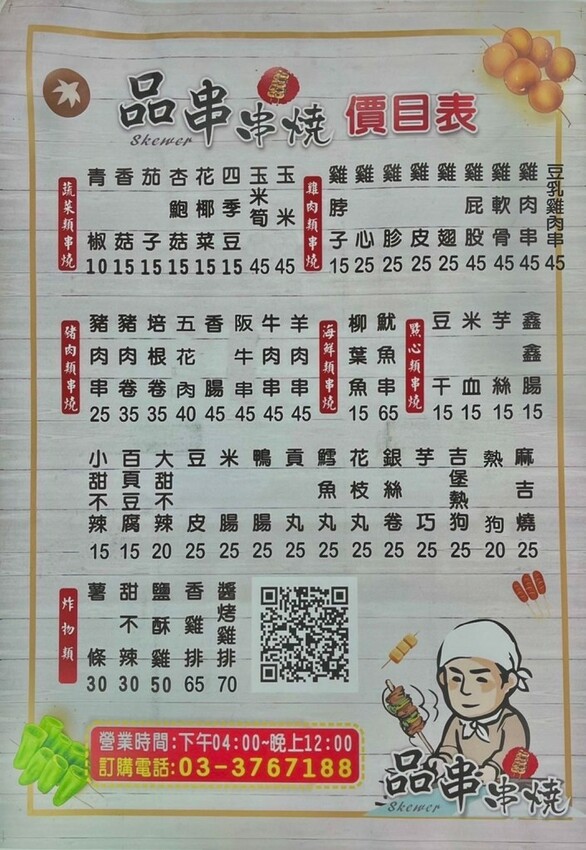 品串串燒
Skewer
價目表
蔬菜類串燒
青椒 10
香菇 15
茄子 15
杏鮑菇 15
花椰菜 15
四季豆 15
玉米筍 45
玉米 45
雞肉類串燒
雞脖子 15
雞心 25
雞胗 25
雞皮 25
雞翅 25
雞屁股 45
雞軟骨 45
雞肉串 45
豆乳雞肉串 45
豬肉類串燒
豬肉串 25
豬肉卷 35
培根卷 35
五花肉 40
香腸 45
阪牛串 45
牛肉串 45
羊肉串 45
海鮮類串燒
柳葉魚 15
魷魚串 65
點心類串燒
豆干 15
米血 15
芋絲 15
鑫鑫腸 15
小甜不辣 15
百頁豆腐 15
大甜不辣 20
豆皮 25
米腸 25
鴨腸 25
貢丸 25
鱈魚丸 25
花枝丸 25
銀絲卷 25
芋巧 25
吉堡熱狗 25
熱狗 20
麻吉燒 25
炸物類
薯條 30
甜不辣 30
鹽酥雞 50
香雞排 65
醬烤雞排 70
營業時間:下午04:00~晚上12:00
訂購電話:03-3767188
品串串燒
Skewer